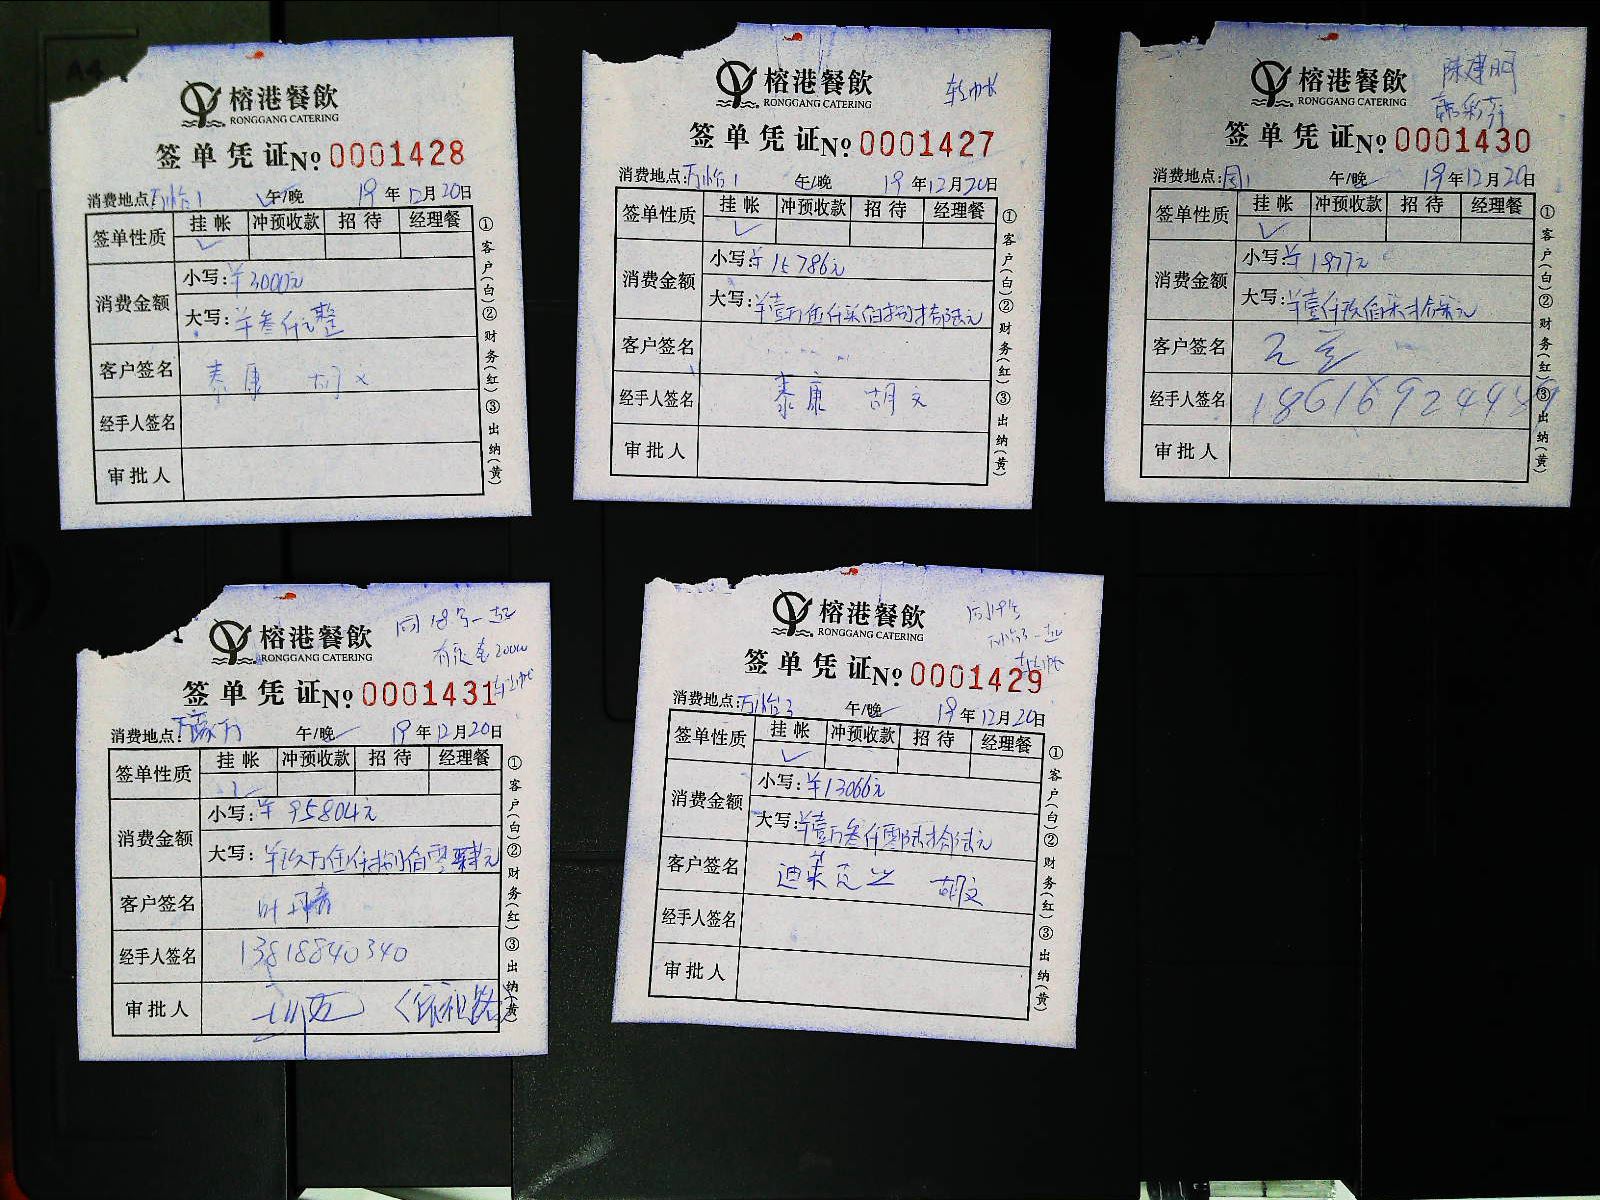 榕港餐飲
RONGGANG CATERING
签单凭证 No 0001428
消费地点:万怡1 午/晚 19年12月20日
签单性质 挂帐 冲预收款 招待 经理餐
✓
消费金额 小写:¥3000元
大写:¥叁仟元整
客户签名 泰康 胡文
经手人签名
审批人
①客户(白)②财务(红)③出纳(黄)
榕港餐飲
RONGGANG CATERING
转帐
签单凭证 No 0001427
消费地点:万怡1 午/晚 19年12月20日
签单性质 挂帐 冲预收款 招待 经理餐
✓
消费金额 小写:¥15786元
大写:¥壹万伍仟柒佰捌拾陆元
客户签名
经手人签名 泰康 胡文
审批人
①客户(白)②财务(红)③出纳(黄)
榕港餐飲
RONGGANG CATERING
陈建明
签单凭证 No 0001430
消费地点: 午/晚 19年12月20日
签单性质 挂帐 冲预收款 招待 经理餐
✓
消费金额 小写:¥1977元
大写:¥壹仟玖佰柒拾柒元
客户签名
经手人签名 18616924989
审批人
①客户(白)②财务(红)③出纳(黄)
榕港餐飲
RONGGANG CATERING
同18号一起
签单凭证 No 0001431
消费地点: 午/晚 19年12月20日
签单性质 挂帐 冲预收款 招待 经理餐
✓
消费金额 小写:¥95804元
大写:¥玖万伍仟捌佰零肆元
客户签名
经手人签名 13818840340
审批人
①客户(白)②财务(红)③出纳(黄)
榕港餐飲
RONGGANG CATERING
万怡3一起
转帐
签单凭证 No 0001429
消费地点:万怡3 午/晚 19年12月20日
签单性质 挂帐 冲预收款 招待 经理餐
✓
消费金额 小写:¥13066元
大写:¥壹万叁仟零陆拾陆元
客户签名 迪莱克兰 胡文
经手人签名
审批人
①客户(白)②财务(红)③出纳(黄)